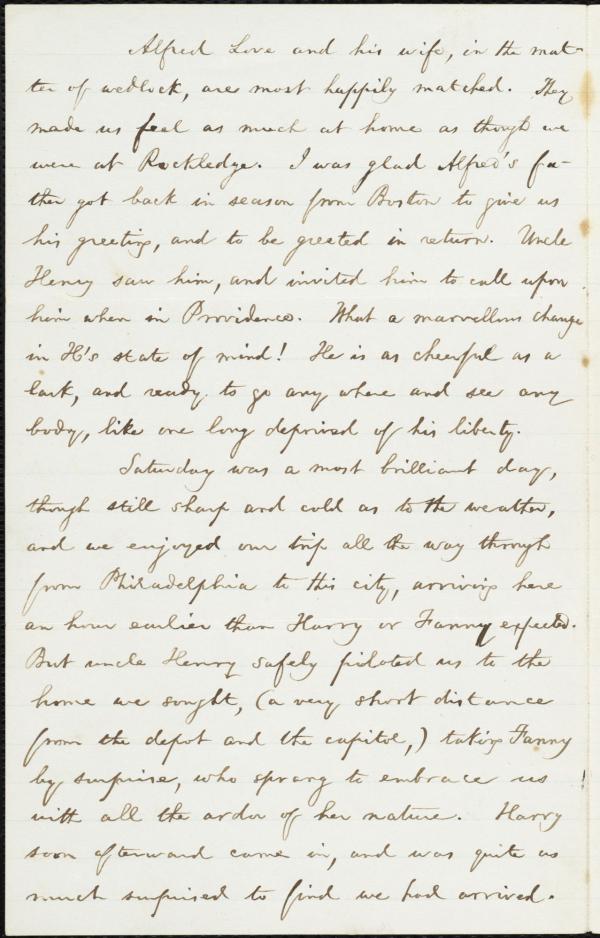 Alfred Love and his wife, in the mat-
ter of wedlock, are most happily matched. They
made us feel as much at home as though we
were at Rockledge. I was glad Alfred's fa-
ther got back in season from Boston to give us
his greeting, and to be greeted in return. Uncle
Henry saw him, and invited him to call upon
him when in Providence. What a marvellous change
in H's state of mind! He is as cheerful as a
lark, and ready to go any where and see any
body, like one long deprived of his liberty.
Saturday was a most brilliant day,
though still sharp and cold as to the weather,
and we enjoyed our trip all the way through
from Philadelphia to this city, arriving here
an hour earlier than Harry or Fanny expected.
But uncle Henry safely piloted us to the
home we sought, (a very short distance
from the depot and the capitol,) taking Fanny
by surprise, who sprang to embrace us
with all the ardor of her nature. Harry
soon afterward came in, and was quite as
much surprised to find we had arrived.